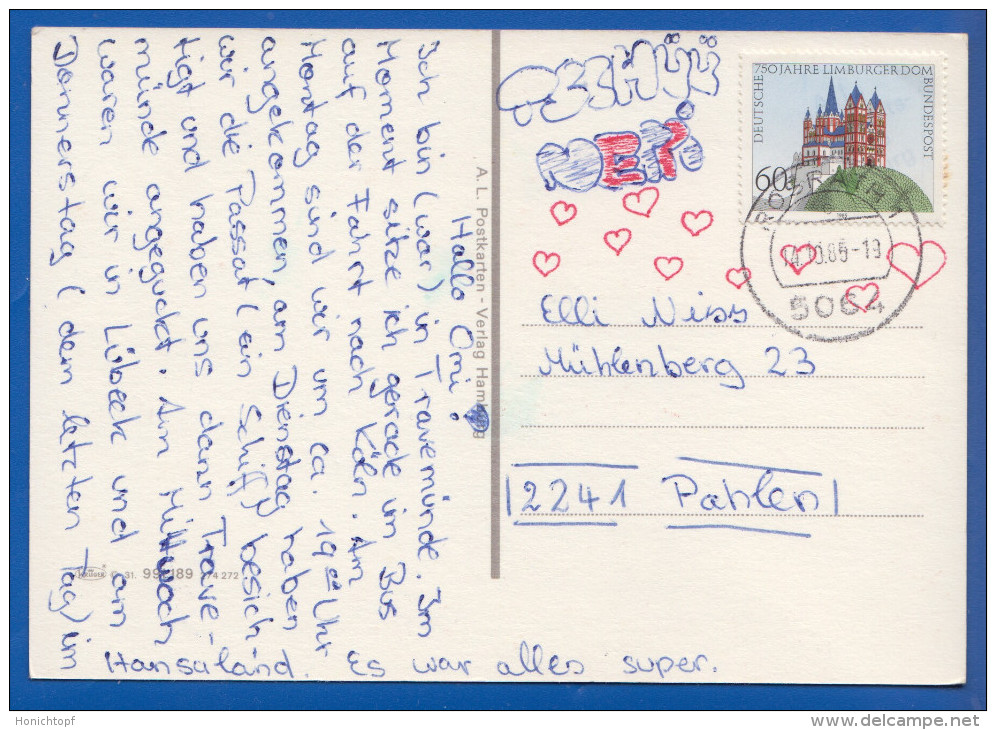 Hallo Omi!
Ich bin (war) in Travemünde. Im
Moment sitze ich gerade im Bus
auf der Fahrt nach Köln. Am
Montag sind wir um ca. 19 00 Uhr
angekommen, am Dienstag haben
wir die Passat (ein Schiff) besich-
tigt und haben uns dann Trave-
münde angeguckt. Am Mittwoch
waren wir in Lübeck und am
Donnerstag (dem letzten Tag) im
Hansaland. Es war alles super.
A. L. Postkarten - Verlag Hamburg
KRÜGER
31. 992/89 274 272
TSCHÜÜ
750 JAHRE LIMBURGER DOM
DEUTSCHE
BUNDESPOST
60
14.10.86-19
5064
Elli Niss
Mühlenberg 23
2241 Pahlen
Honichtopf
www.delcampe.net